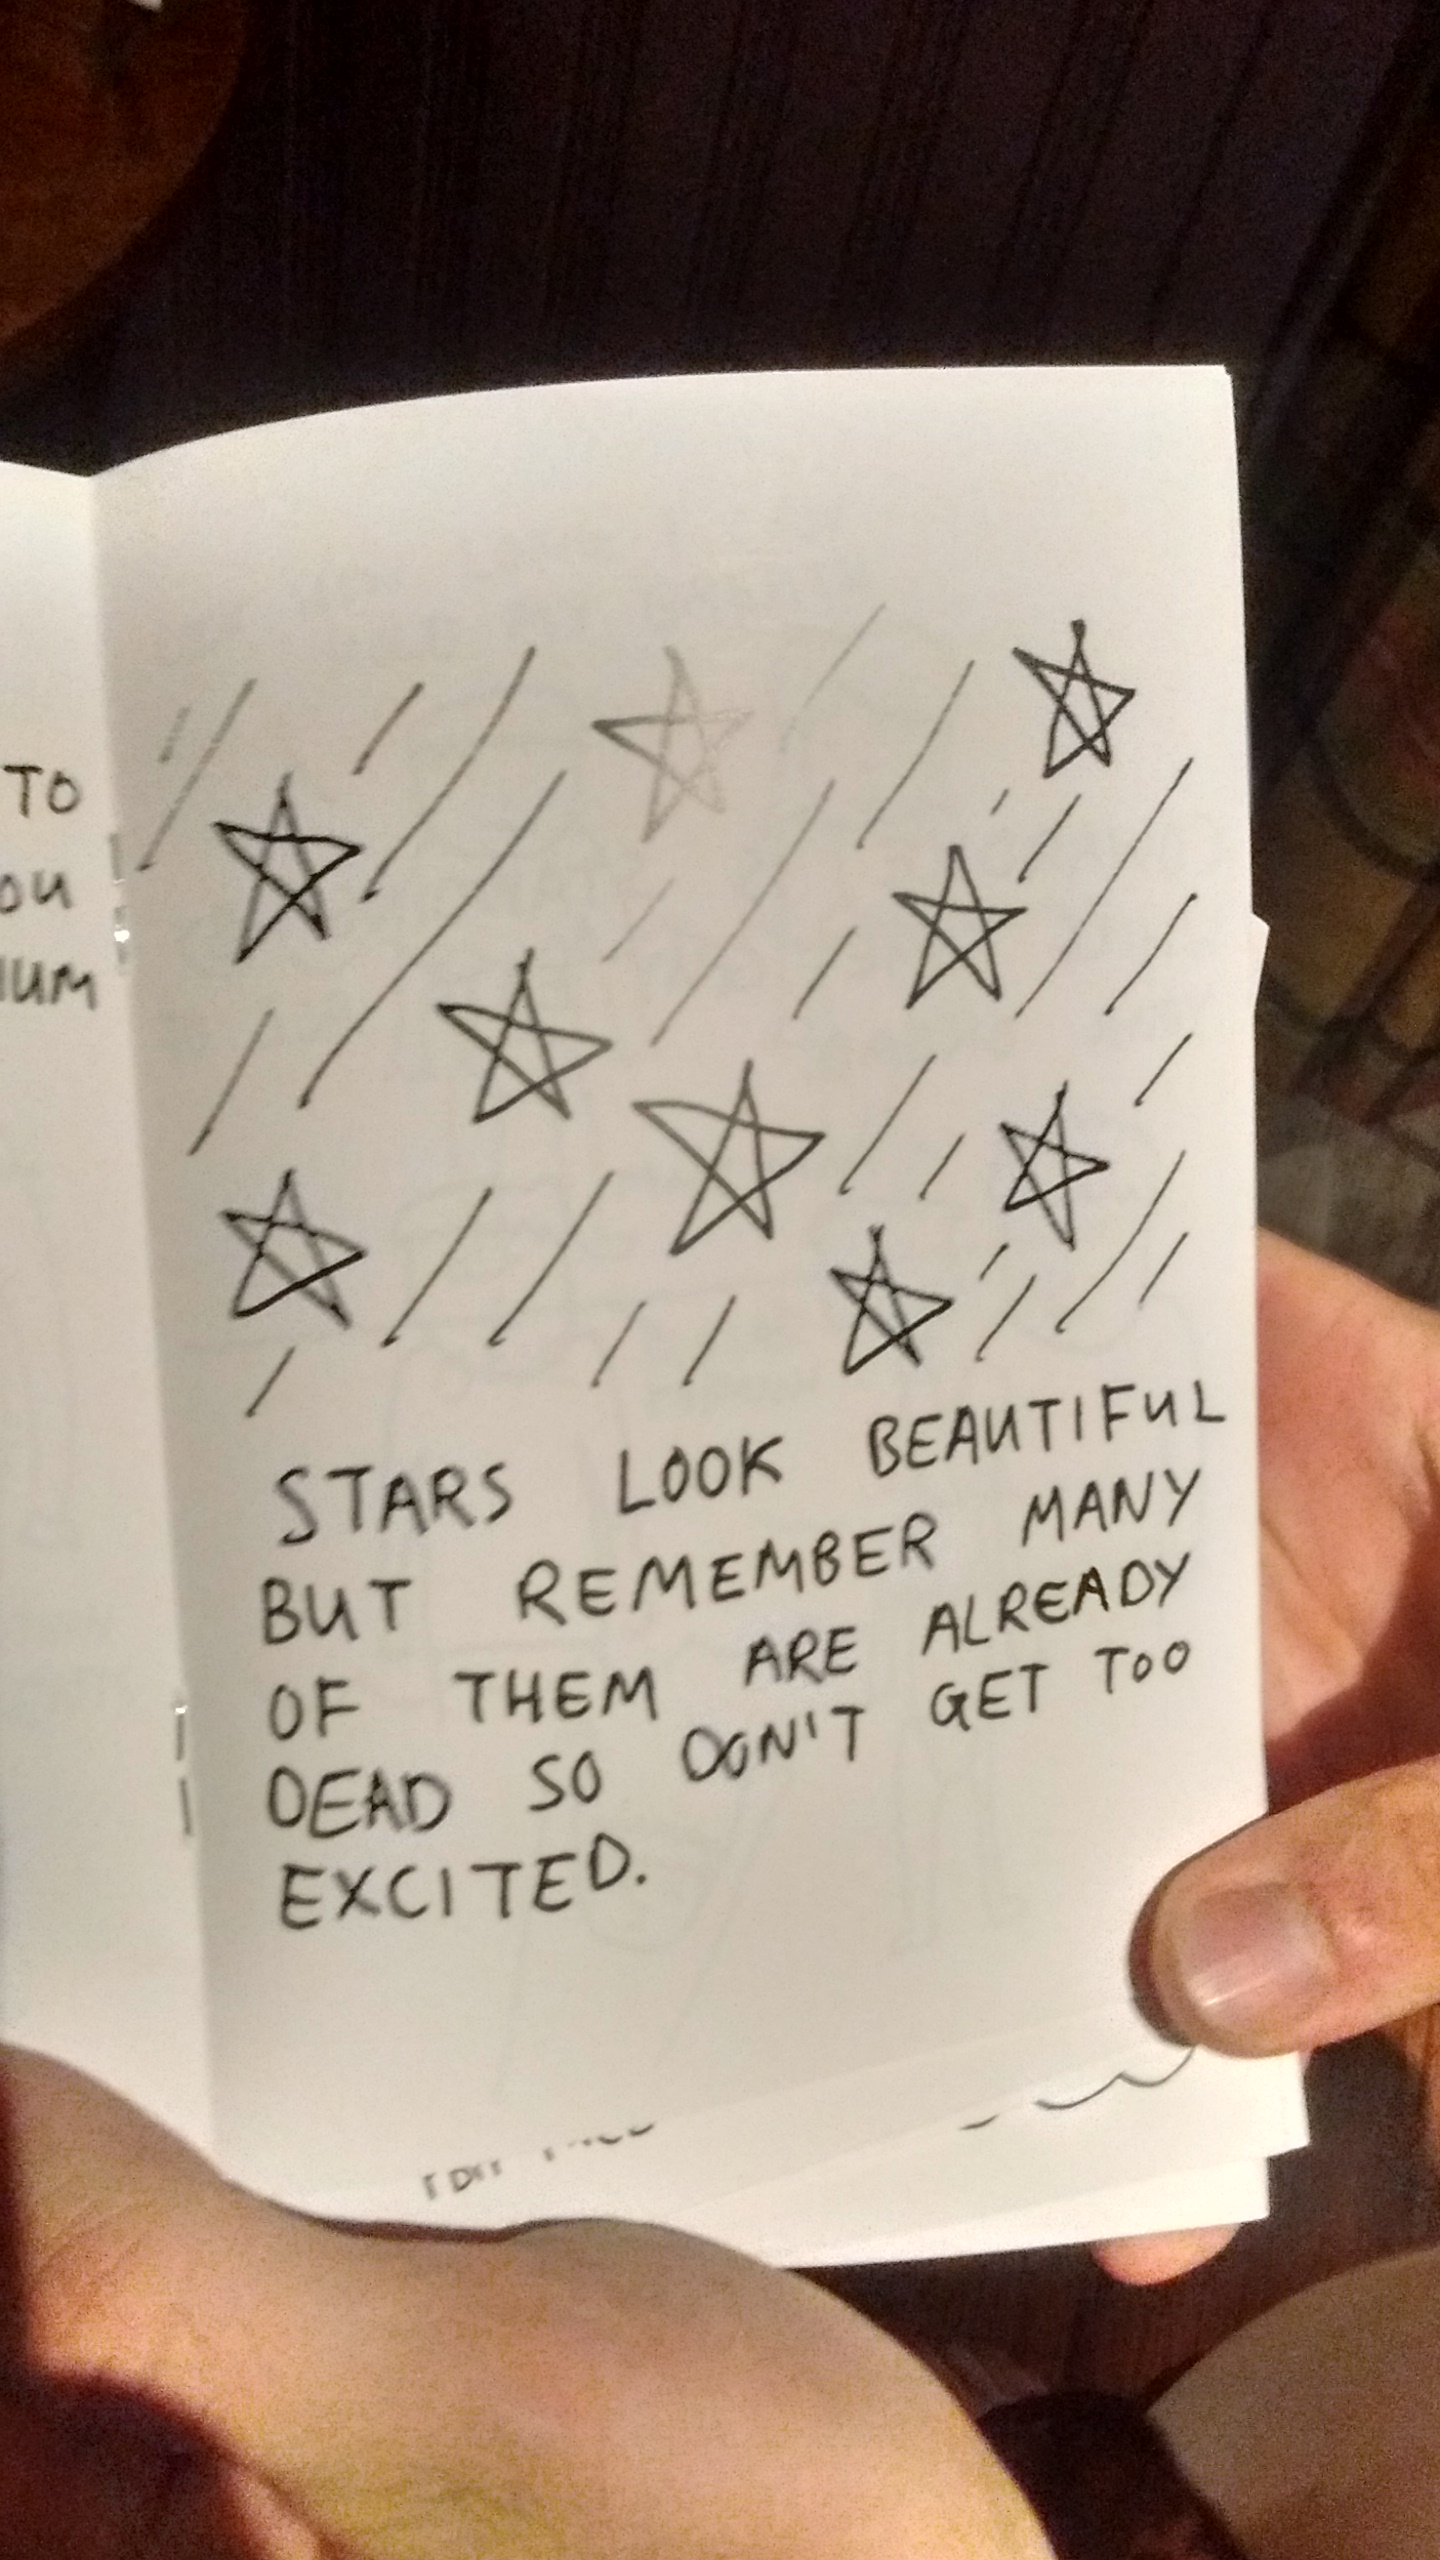 TO
STARS LOOK BEAUTIFUL
BUT REMEMBER MANY
OF THEM ARE ALREADY
DEAD SO DON'T GET TOO
EXCITED.